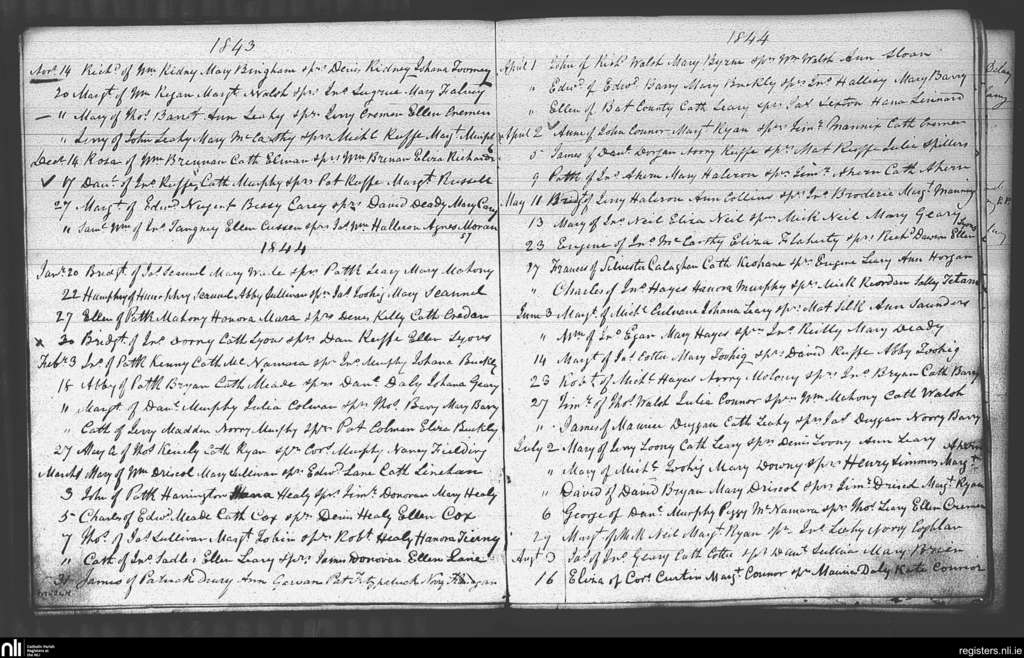 1843
Novr 14 Richd of Wm Kidney Mary Bingham sprs Denis Kidney Johana Toomey
20 Margt of Wm Regan Margt Walsh sprs Jno Sugrue Mary Falvey
" Mary of Thos Barett Ann Leahy sprs Jerry Cremen Ellen Cremen
" Jerry of John Leahy Mary McCarthy sprs Michl Keeffe Margt
Decr 14 Rosa of Wm Brennan Cath sprs Wm Brenan Eliza Richards
17 Danl of Jno Keeffe Cath Murphy sprs Pat Keeffe Margt Russell
27 Margt of Edwd Nugent Bessy Carey sprs David Deady Mary Cary
" Saml Wm of Jno Tangney Ellen Cussen sprs Jas Wm Halleron Agnes Moran
1844
Jany 20 Bridgt of Jas Scannel Mary Wale sprs Patk Leary Mary Mahony
22 Humphry of Humphry Scannel Abby Sullivan spr Jas Mary Scannel
27 Ellen of Patk Mahony Honora Mara sprs Denis Kelly Cath
x 30 Bridgt of Jno Dorney Cath Lyons sprs Dan Keeffe Ellen Lyons
Feby 3 Jno of Patk Kenny Cath McNamara spr Jno Murphy Johana Buckly
18 Abby of Patk Bryan Cath Meade sprs Danl Daly Johana Geary
" Margt of Danl Murphy Julia Colman sprs Thos Barry Mary Barry
" Cath of Jerry Madden Norry Murphy sprs Pat Colman Eliza Buckly
27 of Thos Cath Ryan spr Cors Murphy Nancy Fielding
March 1 Mary of Wm Driscol Mary Sullivan sprs Edwd Lane Cath Linehan
3 John of Patk Harrington Healy sprs Timy Donovan Mary Healy
5 Charles of Edwd Meade Cath Cox sprs Denis Healy Ellen Cox
7 Thos of Jas Sullivan Margt Tobin sprs Robt Healy Hanora Tierny
" Cath of Jno Sadler Ellen Leary sprs James Donovan Ellen Lane
31 James of Patrick Ann Pat Fitzpatrick Nory
1844
April 1 John of Richd Walsh Mary Byrne sprs Wm Walsh Ann Sloan
" Edwd of Edwd Barry Mary Buckly sprs Jno Mary Barry
" Ellen of Bat County Cath Leary sprs Jas Sexton Hana Lennard
April 2 Anne of John Connor Margt Ryan sprs Timy Mannix Cath Cremen
5 James of Danl Dorgan Norry Keeffe sprs Mat Keeffe Julia Spillers
9 Patk of Jno Ahern Mary Haleron sprs Timy Ahern Cath Ahern
May 11 Bridgt of Jerry Haleron Ann Collins sprs Jno Broderic Margt Manning
13 Mary of Jno Neil Eliza Neil sprs Mick Neil Mary Geary
23 Eugene of Jno McCarthy Eliza Flaherty sprs Richd Ellen Lyons
27 Frances of Silvester Calaghan Cath Keohane sprs Eugene Leary Ann Horgan
" Charles of Jno Hayes Honora Murphy sprs Mick Reordan Sally
June 3 Margt of Michl Johana Leary sprs Mat Silk Ann Saunders
" Wm of Jno Egan Mary Hayes sprs Jno Reilly Mary Deady
14 Margt of Jas Cotter Mary sprs David Keeffe Abby
23 Robt of Michl Hayes Norry Molony sprs Jno Bryan Cath Barry
27 Timy of Thos Walsh Julia Connor sprs Wm Mahony Cath Walsh
" James of Maurice Duggan Cath Leahy sprs Jas Duggan Norry Barry
July 2 Mary of Jerry Toony Cath Leary sprs Denis Toony Ann Leary
" Mary of Michl Mary Downy sprs Henry Simmons Margt
" David of David Bryan Mary Driscol sprs Timy Driscol Margt Ryan
6 George of Danl Murphy Peggy McNamara sprs Thos Leary Ellen Cremen
29 Margt of Neil Margt Ryan sprs Jno Leahy Norry Coghlan
Augt 3 Jas of Jno Geary Cath Cotter sprs Danl Mary Breen
16 Eliza of Cors Curtin Margt Connor sprs Maurice Daly Kate Connor
nli
Catholic Parish
Registers at
the NLI
registers.nli.ie